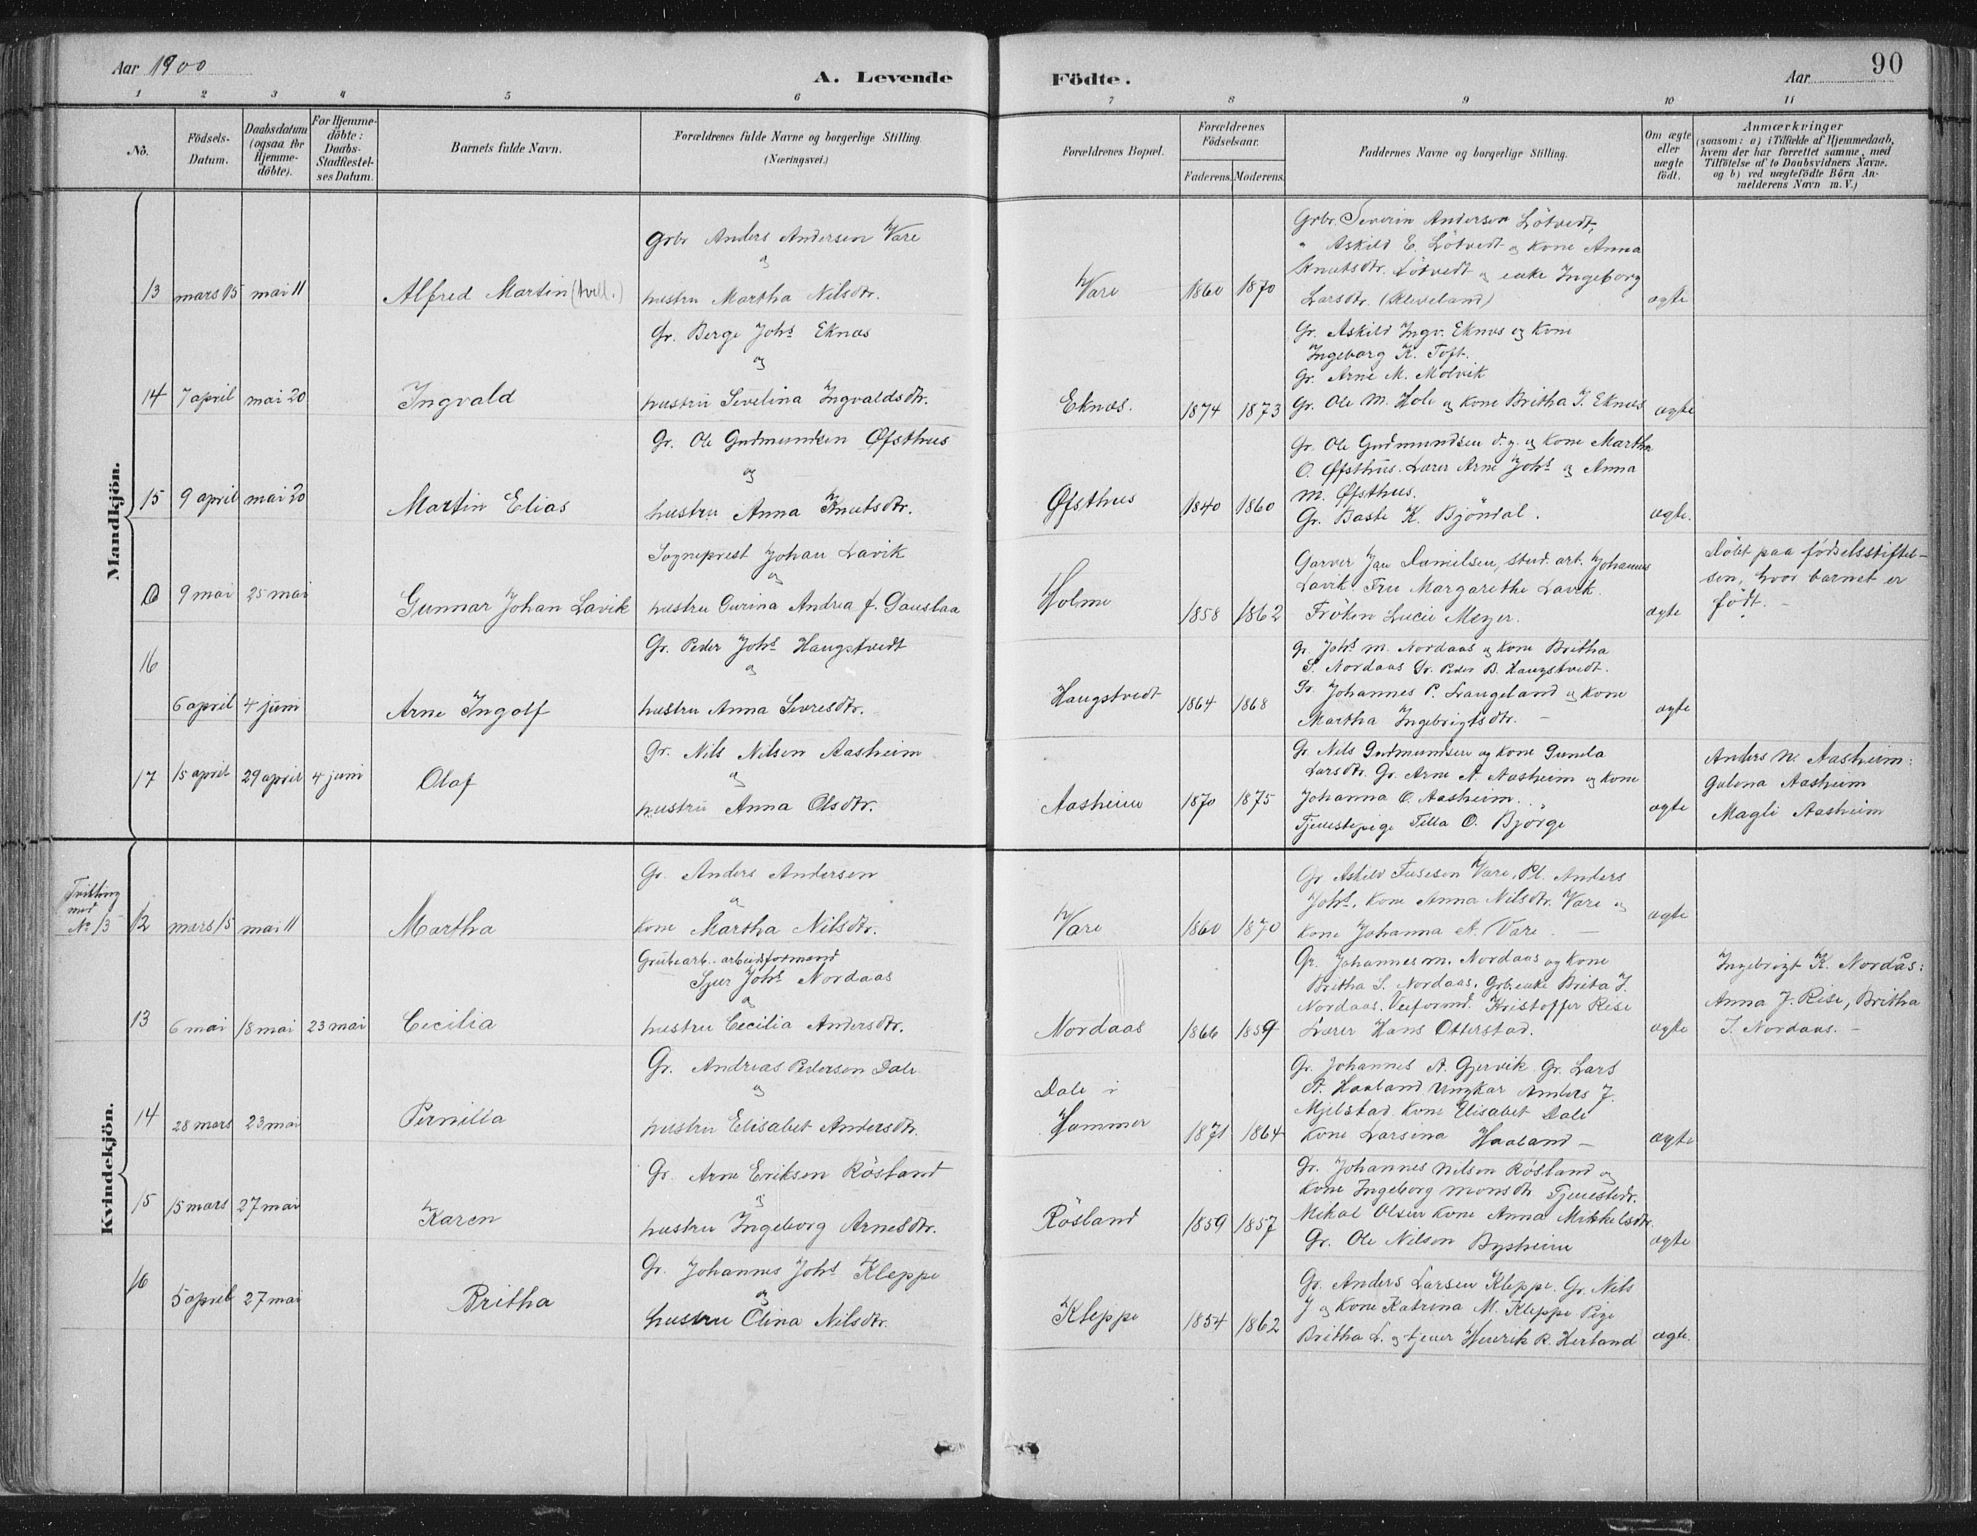 Aar 1900
A. Levende Födte.
Aar
90
1 2 3 4 5 6 7 8 9 10 11
No.
Födsels-Datum.
Daabsdatum (ogsaa for Hjemme-döbte).
For Hjemme-döbte: Daabs-Stadfæstel-ses Datum.
Barnets fulde Navn.
Forældrenes fulde Navne og borgerlige Stilling
(Næringsvei.)
Forældrenes Bopæl.
Forældrenes Födselsaar.
Faderens. Moderens.
Faddernes Navne og borgerlige Stilling.
Om ægte eller uægte födt.
Anmærkninger
(saasom: a) i Tilfælde af Hjemmedaab,
hvem der har forrettet samme, med
Tilföielse af to Daabsvidners Navne.
og b) ved uægtefödte Börn An-
melderens Navn m. V.)
Mandkjön.
13 mars 15 mai 11 Alfred Martin (tvill.)
Grbr Anders Andersen Vare
og
hustru Martha Nilsdtr.
Vare 1860 1870
Grbr. Severin Andersen Lötvedt,
" Askild E. Lötvedt og kone Anna
Knutsdtr. Lötvedt og enke Ingeborg
Larsdtr. (Kleveland)
ægte
14 7 april mai 20 Ingvald
Gr. Berge Johs Eknæs
og
hustru Sevelina Ingvaldsdtr.
Eknæs. 1874 1873
Gr. Askild Ingv. Eknæs og kone
Ingeborg K. Toft.
Gr. Arne M. Molvik
Gr. Ole M. Hole og kone Britha J. Eknæs
ægte
15 9 april mai 20 Martin Elias
Gr. Ole Gudmundsen Øfsthus
og
hustru Anna Knutsdtr.
Øfsthus 1840 1860
Gr. Ole Gudmundsen d.y. og kone Martha
O. Øfsthus. Lærer Arne Johs og Anna
M. Øfsthus.
Gr. Baste K. Bjöndal.
ægte.
9 mai 25 mai Gunnar Johan Lavik
Sogneprest Johan Lavik
og
hustru Andrea f.
Holme 1858 1862
Garver Jan Danielsen, stud. art. Johannes
Lavik Fru Margarethe Lavik.
Fröken Lucie Meyer.
ægte
Döbt paa födselsstiftel-
sen, hvor barnet er
födt. -
16 6 april 4 juni Arne Ingolf
Gr. Peder Johs Haugstvedt
og
hustru Anna Sjursdtr.
Haugstvedt 1864 1868
Gr. Johs M. Nordaas og kone Britha
S. Nordaas Gr. Peder B. Haugstvedt.
Gr. Johannes P. Langeland og kone
Martha Ingebrigtsdtr. -
ægte
17 15 april 29 april 4 juni Olaf
Gr. Nils Nilsen Aasheim
og
hustru Anna Olsdtr.
Aasheim 1870 1875
Gr. Nils Gudmundsen og kone Gunela
Larsdtr. Gr. Arne N. Aasheim og kone
Johanna O. Aasheim.
Tjenestepige Tilla O. Bjorge
ægte
Anders N. Aasheim:
Galena Aasheim
Magli Aasheim
Kvindekjön.
Tvilling
med
No 13
12 mars 15 mai 11 Martha
Gr. Anders Andersen
og
kone Martha Nilsdtr.
Vare 1860 1870
Gr. Askild Vare, Pl. Anders
Johs. kone Anna Nilsdtr. Vare og
kone Johanna A. Vare. -
ægte
13 6 mai 18 mai 23 mai Cecilia
Grubearb. arbeidsformand
Sjur Johs Nordaas
og
hustru Cecilia Andersdtr.
Nordaas 1866 1859
Gr. Johannes M. Nordaas og kone
Britha S. Nordaas. Grb.enke Brita J.
Nordaas. Veiformd. Kristoffer Rise
Lærer Hans Otterstad.
ægte
Ingebrigt K. Nordås:
Anna J. Rise, Britha
J. Nordaas. -
14 28 mars 23 mai Pernilla
Gr. Andreas Pedersen Dale
og
hustru Elisabet Andersdtr.
Dale i
Hammer
1871 1864
Gr. Johannes A. Gjervik. Gr. Lars
A. Haaland Ungkar Anders J.
Mjelstad. kone Elisabet Dale
kone Larsina Haaland -
ægte
15 15 mars 27 mai Karen
Gr. Arne Eriksen Rösland
og
hustru Ingeborg Arnesdtr.
Rösland 1859 1857
Gr. Johannes Nilsen Rösland og
kone Ingeborg Monsdtr Tjenestedr.
Mikal Olsen kone Anna Mikkelsdtr.
Gr. Ole Nilson Bysheim
ægte
16 5 april 27 mai Britha
Gr. Johannes Johs Kleppe
og
hustru Olina Nilsdtr.
Kleppe 1854 1862
Gr. Anders Larsen Kleppe. Gr. Nils
J. og kone Katrina M. Kleppe Pige
Britha L. og tjener Henrik R. Herland
ægte.